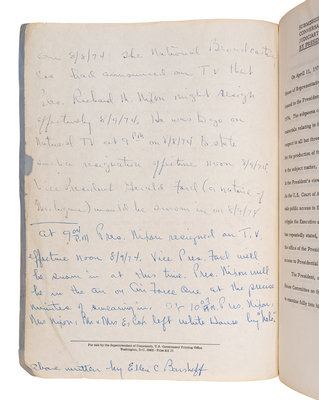 On 8/8/74 the National Broadcasting
had announced on T.V that
Pres. Richard N. Nixon might resign
effectively 8/9/74. He was to go on
National TV at 9 PM on 8/8/74 to state
resignation effective noon 8/9/74
Vice President Gerald Ford (a native of
Michigan) would be sworn in on 8/9/74
At 9:00 PM Pres. Nixon resigned on T.V.
effective Noon 8/9/74. Vice Pres. Ford will
be sworn in at this time. Pres. Nixon will
be in the air on Air Force One at the precise
minutes of swearing in. At 10 Pres. Nixon,
Mrs Nixon, Mr. & Mrs E. Cox left White House by
For sale by the Superintendent of Documents, U.S. Government Printing Office
Washington, D.C. 20402 - Price
Above written by Ellen C.
SUBMISSION
CONVERSA
JUDICIARY
BY PRESID
On April 11, 197
House of Representati
issued to the President
1974. The subpoena
materials relating to
respect to all but three
the production of th
is the subject matter
the President's view
the U.S. Court of A
public access to
the Executive
repeatedly stated,
the office of the Presid
to the President.
The President,
Committee on